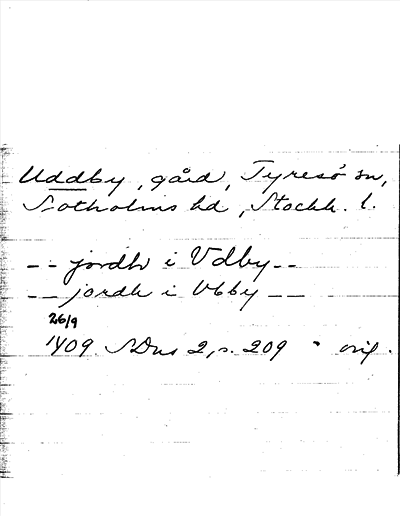 Uddby, gård, Tyresö sn,
Sotholms hd, Stockh. l.
-- jordh i Vdby --
-- jordh i Vbby --
26/9
1409. SDns 2, s. 209 " orig.